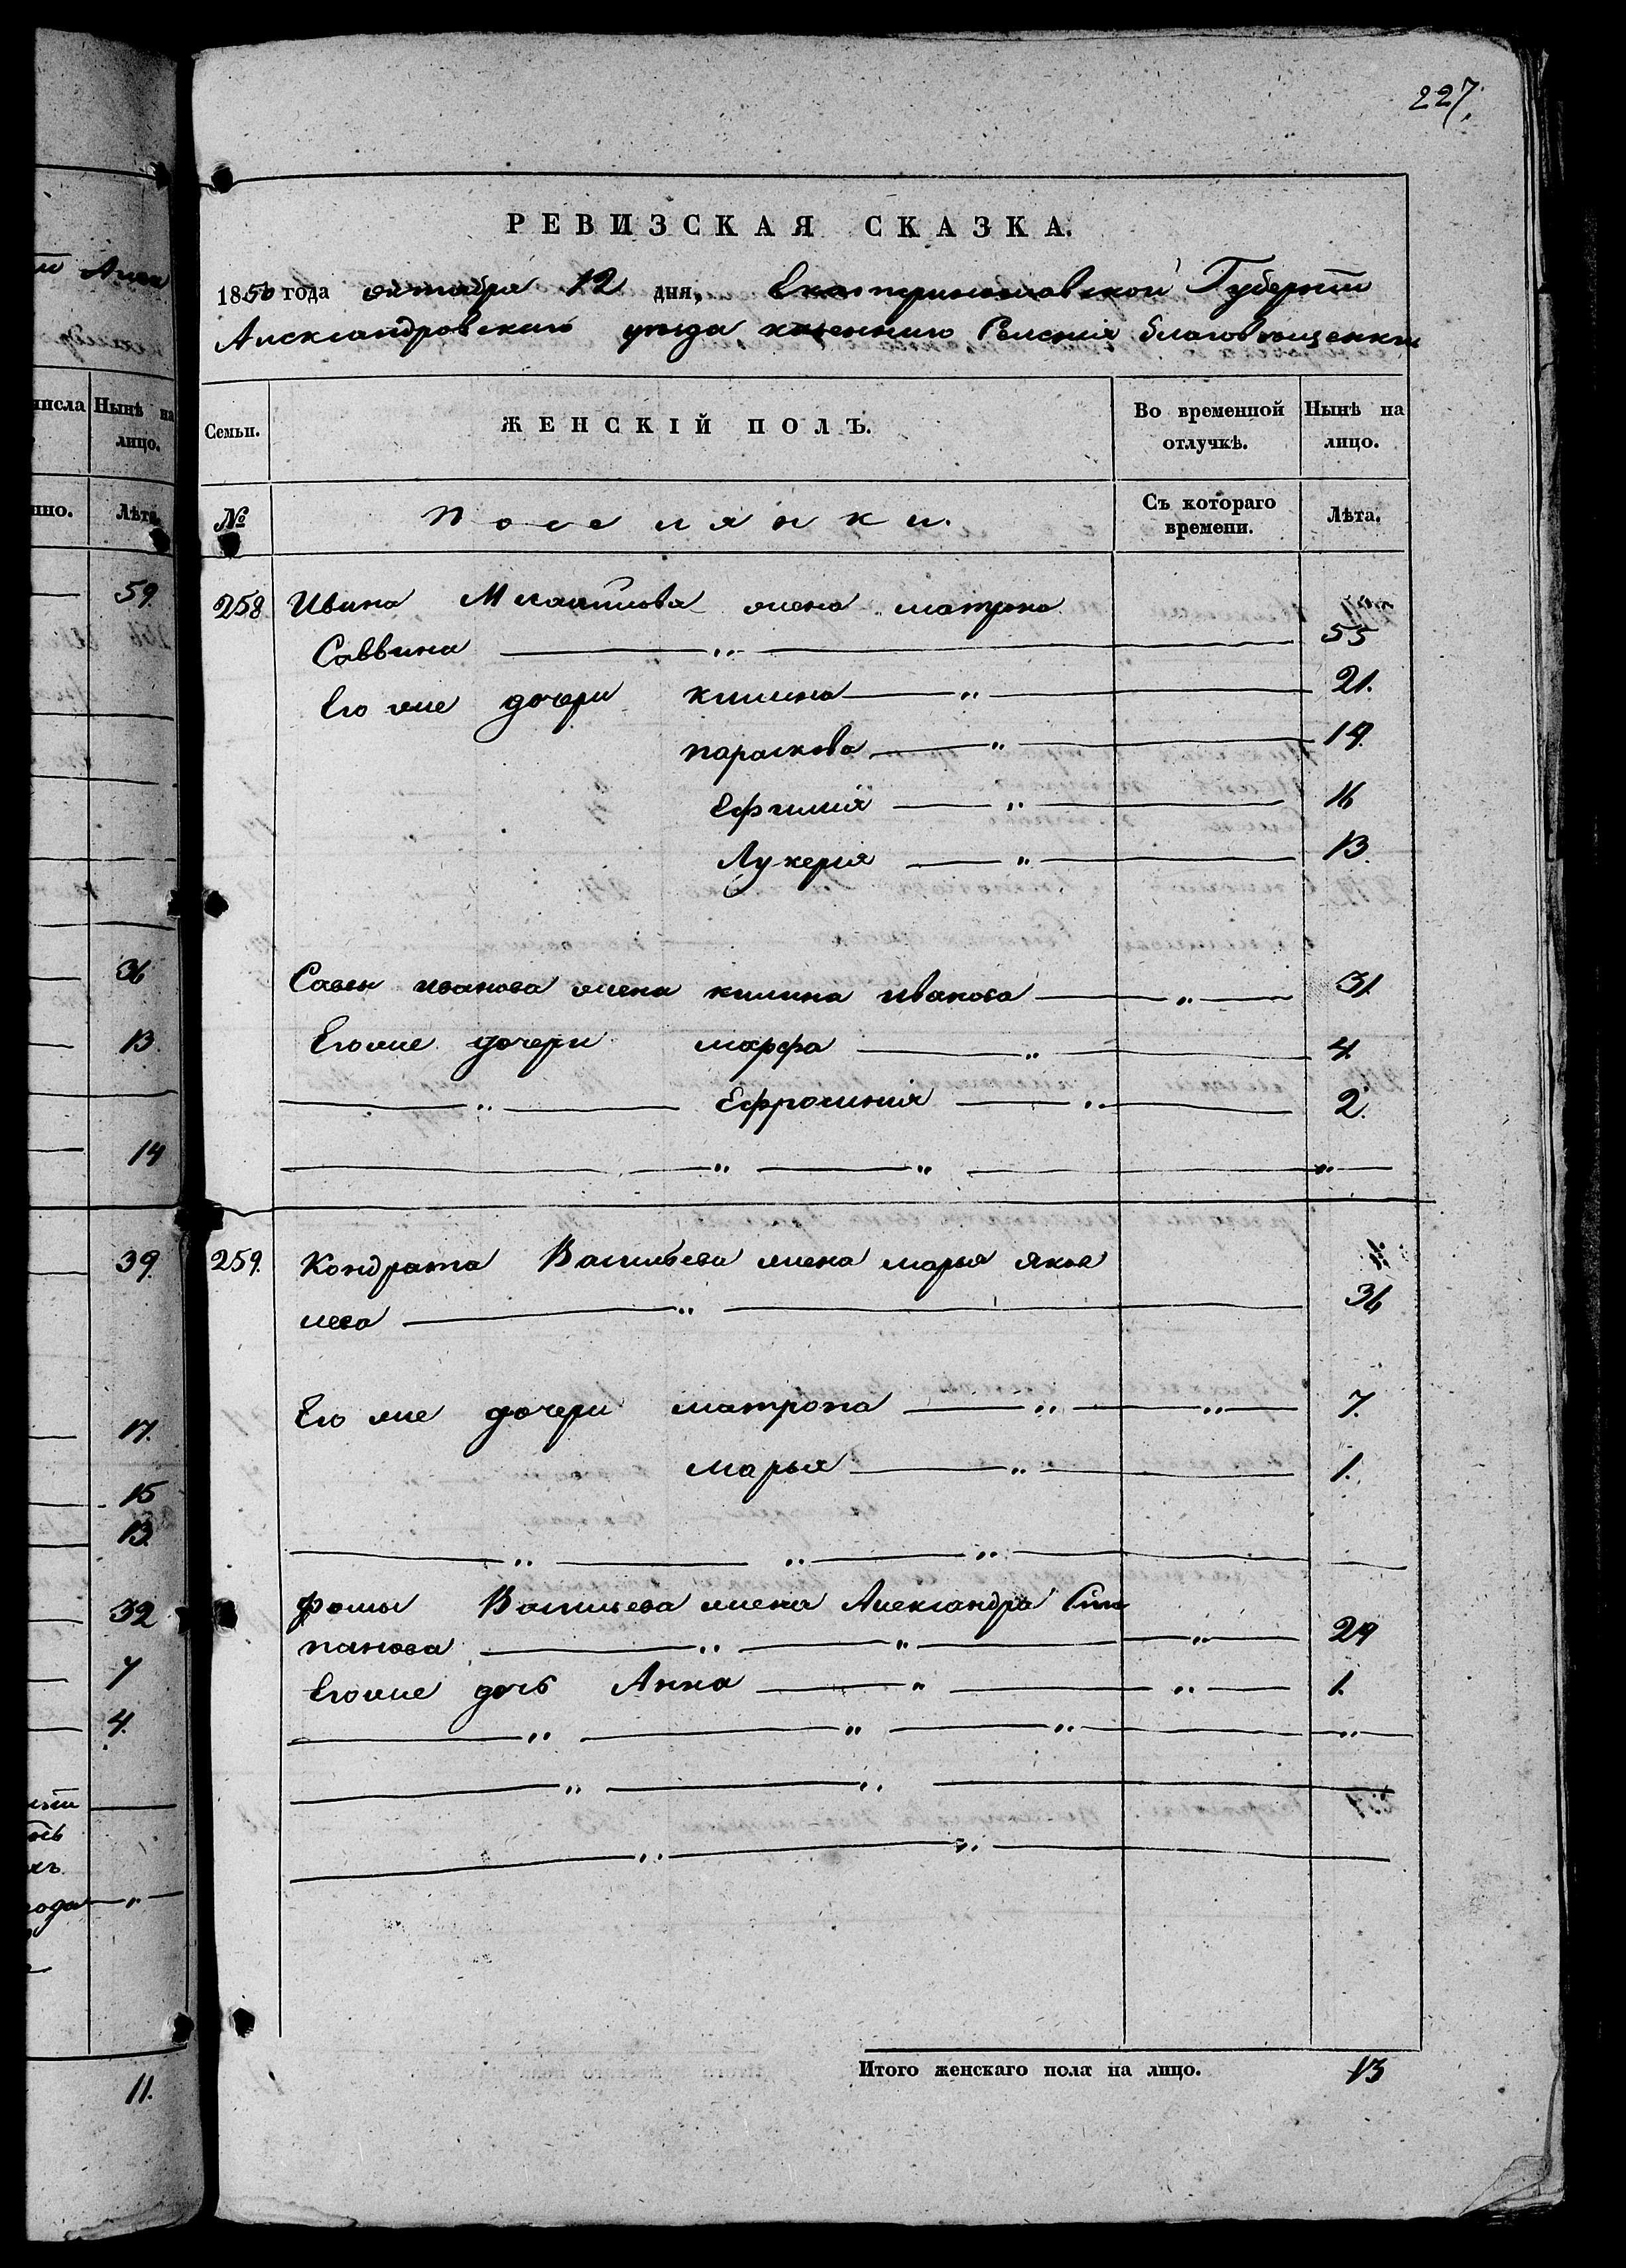 227.
РЕВИЗСКАЯ СКАЗКА.
1850 года октября 12 дня, Екатеринославской Губернии
Александровскаго уезда казеннаго Селения благовещенки
Семьи.
ЖЕНСКІЙ ПОЛЪ.
Во временной отлучкѣ.
Нынѣ на лицо.
№
Поселянки.
Съ котораго времени.
Лѣта.
258 Ивана Михайлова жена матрона
Саввина 55
Его же дочери килина 21.
параскова 19.
Ефимия 16
Лукерия 13.
Савы иванова жена килина иванова 31.
Его же дочери марфа 4.
Ефросиния 2.
259. Кондрата Васильева жена марья яков
лева 36
Его же дочери матрона 7.
марья 1.
фомы Васильева жена Александра Сти
панова 29
Его же дочь Анна 1.
Итого женскаго пола на лицо. 13
числа
Нынѣ на лицо.
Лѣта.
59.
36
13.
14
39.
17.
15
13.
32
7
4.
11.